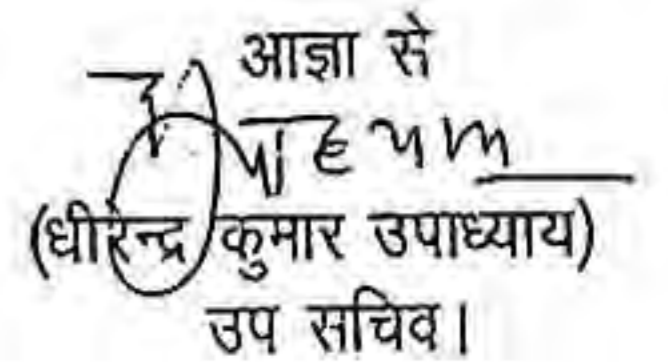 आज्ञा से
(धीरेन्द्र कुमार उपाध्याय)
उप सचिव।